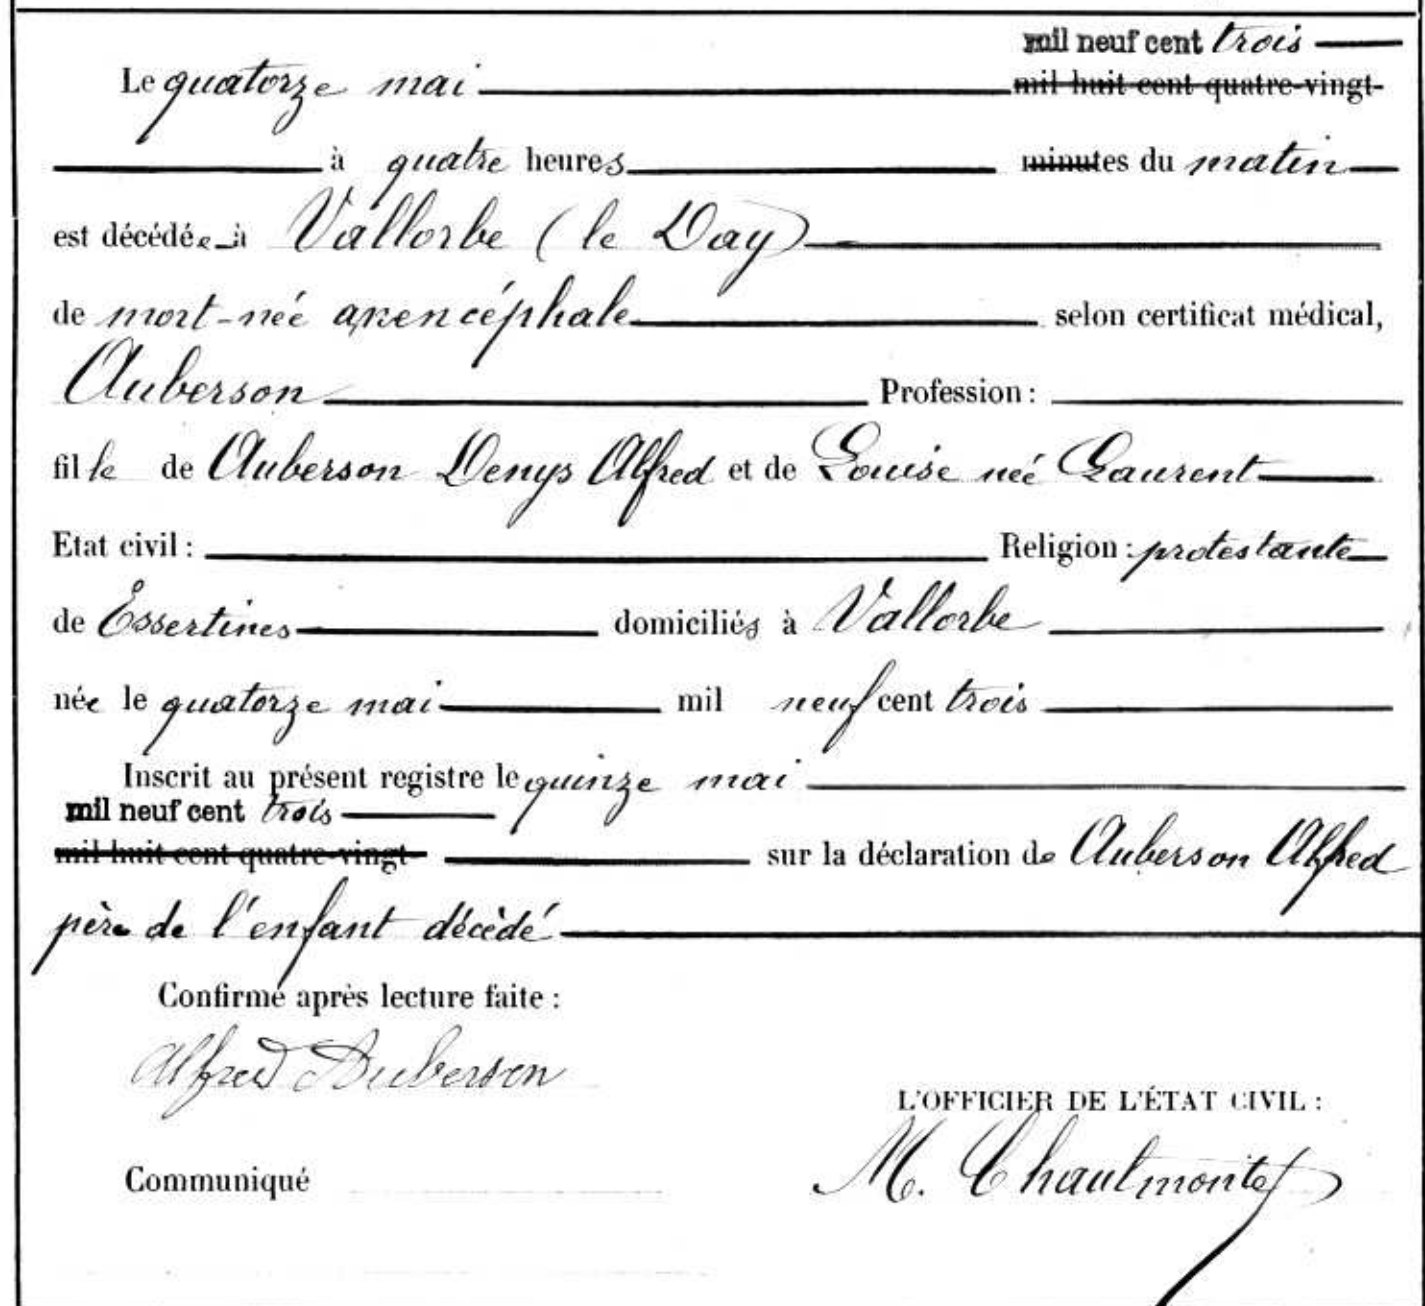 mil neuf cent trois
Le quatorze mai mil huit cent quatre-vingt-
à quatre heures minutes du matin
est décédée à Vallorbe (le Day)
de mort-née anencéphale selon certificat médical,
Auberson Profession :
fille de Auberson Denys Alfred et de Louise née Laurent
Etat civil : Religion : protestante
de Essertines domiciliés à Vallorbe
née le quatorze mai mil neuf cent trois
Inscrit au présent registre le quinze mai
mil neuf cent trois
mil huit cent quatre-vingt- sur la déclaration de Auberson Alfred
père de l'enfant décédé
Confirmé après lecture faite :
Alfred Auberson
L'OFFICIER DE L'ÉTAT CIVIL :
Communiqué M. Chaulmontet